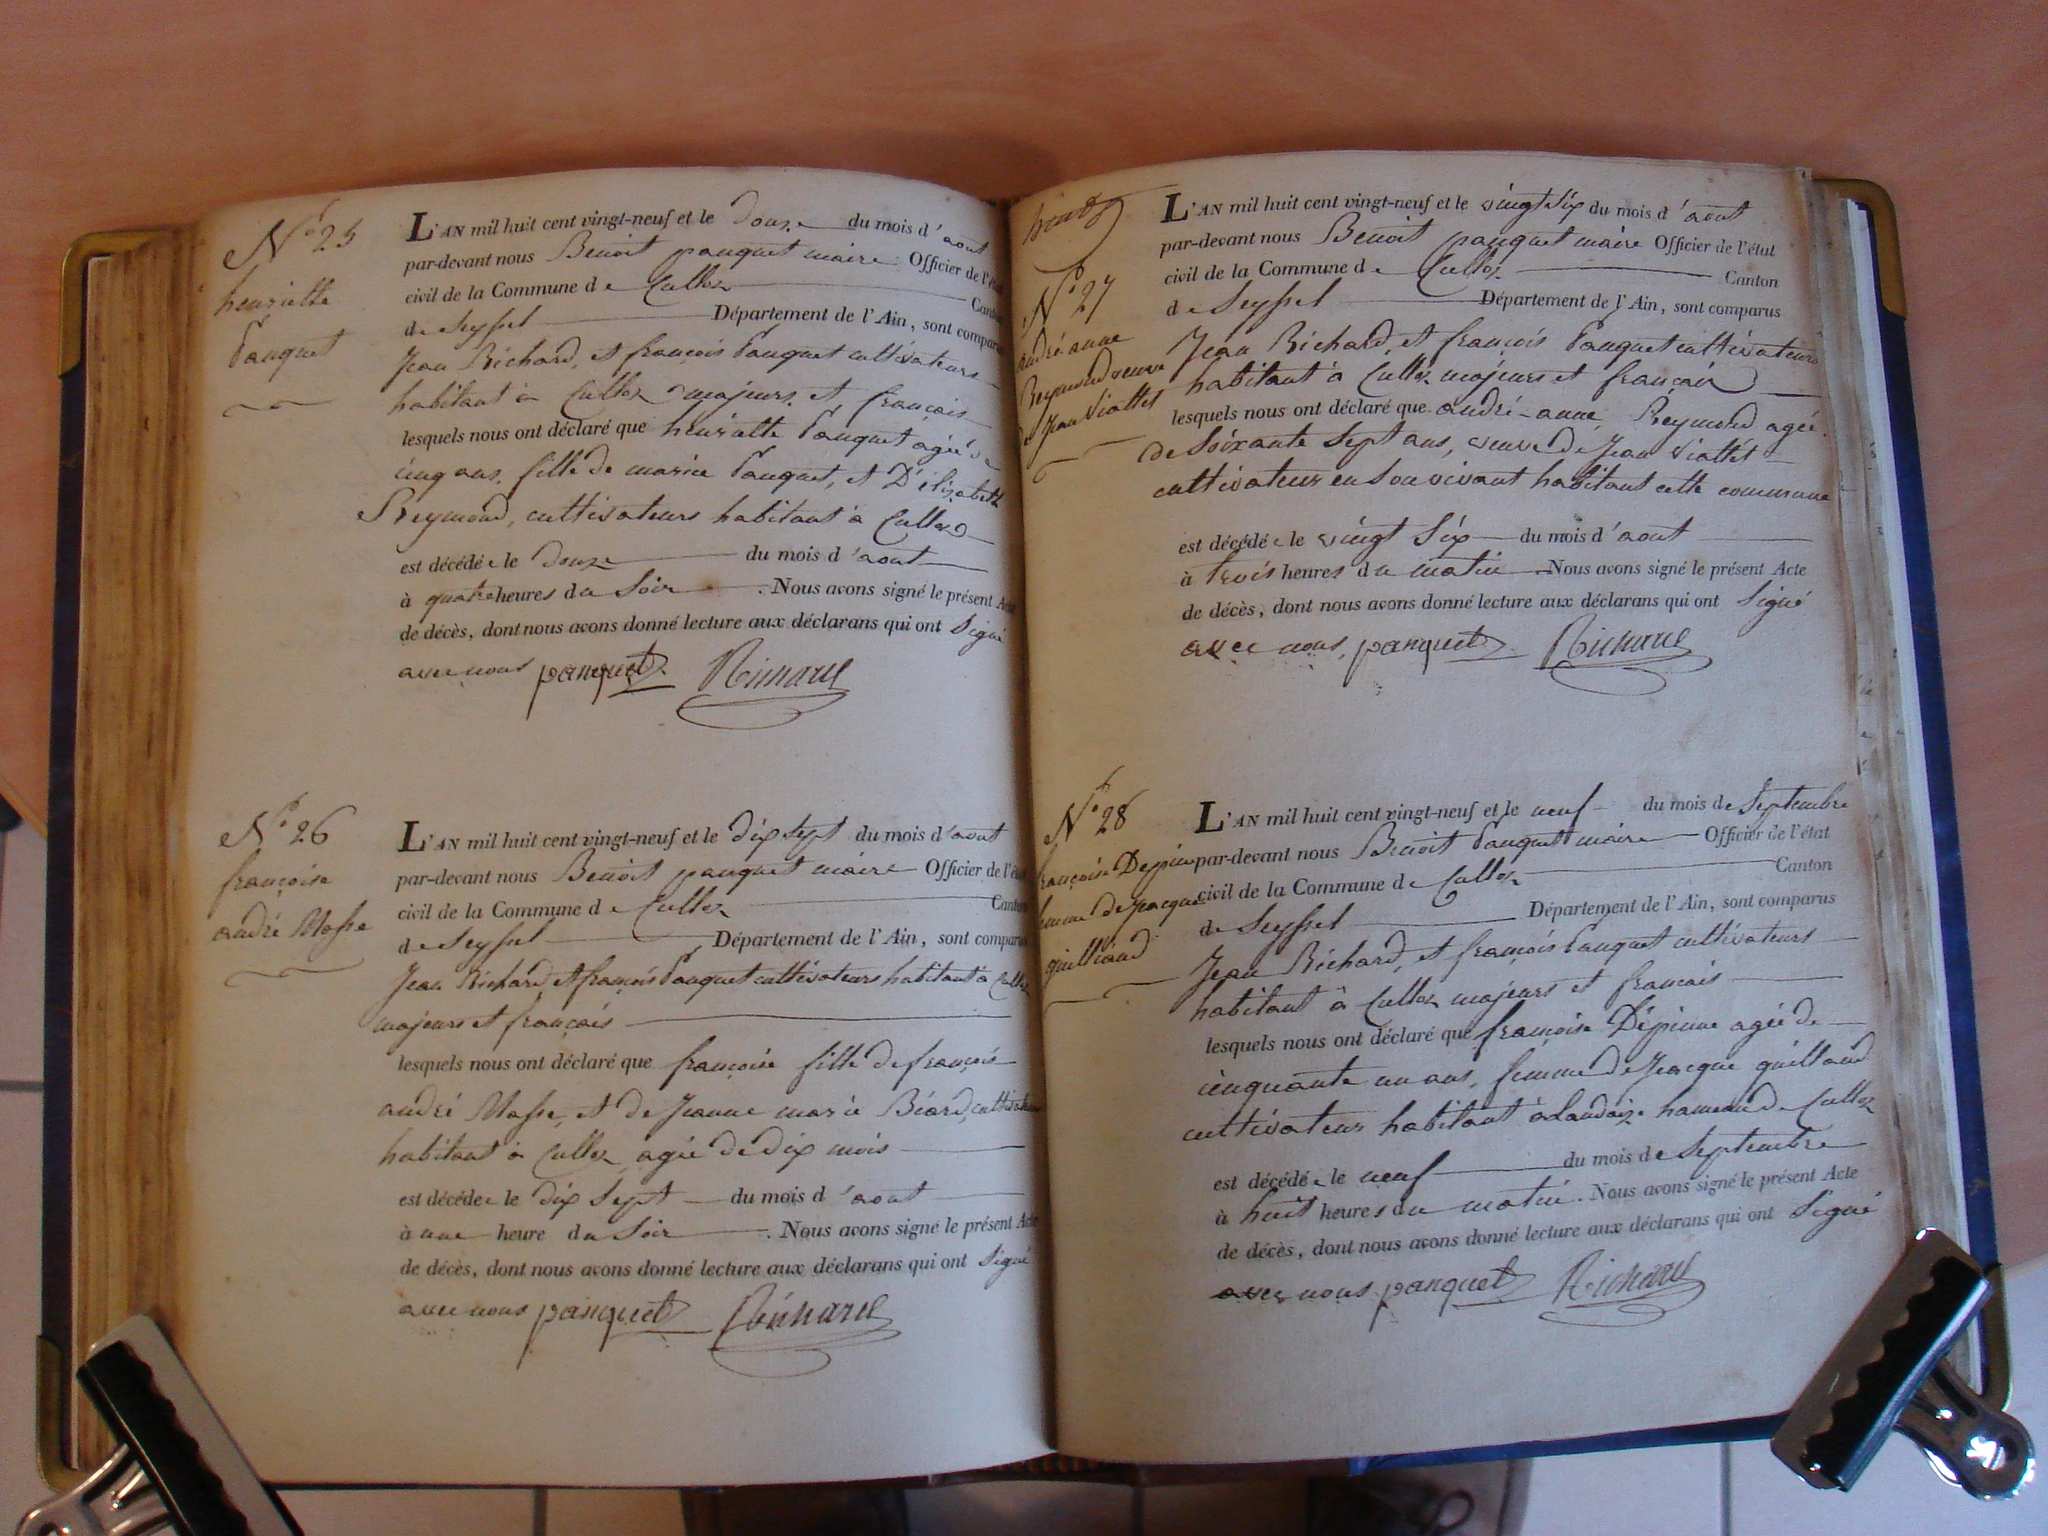 N° 25
henriette
Pauquet
L'AN mil huit cent vingt-neuf et le douze du mois d'aout
par-devant nous Benoit pauquet maire Officier de l'état
civil de la Commune de Culloz Canton
de Seyssel Département de l'Ain, sont comparus
Jean Richard, et françois Pauquet cultivateurs
habitant à Culloz majeurs et français
lesquels nous ont déclaré que henriette Pauquet agéé de
cinq ans, fille de marice Pauquet, et D'élizabeth
Reymond, cultivateurs habitant à Culloz
est décédée le douze du mois d'aout
à quatre heures du Soir. Nous avons signé le présent Acte
de décès, dont nous avons donné lecture aux déclarans qui ont Signé
avec nous pauquet Richard
N° 26
françoise
andré Masse
L'AN mil huit cent vingt-neuf et le dix sept du mois d'aout
par-devant nous Benoit pauquet maire Officier de l'état
civil de la Commune de Culloz Canton
de Seyssel Département de l'Ain, sont comparus
Jean Richard et françois Pauquet cultivateurs habitant à Culloz
majeurs et français
lesquels nous ont déclaré que françoise fille de françois
andré Masse, et de Jeanne marie Béard, cultivateurs
habitant à Culloz agéé de dix mois
est décédée le dix Sept du mois d'aout
à une heure du Soir. Nous avons signé le présent Acte
de décès, dont nous avons donné lecture aux déclarans qui ont Signé
avec nous pauquet Richard
N° 27
andré anne
Reymond veuve
de Jean Viallet
L'AN mil huit cent vingt-neuf et le vingt Six du mois d'aout
par-devant nous Benoit pauquet maire Officier de l'état
civil de la Commune de Culloz Canton
de Seyssel Département de l'Ain, sont comparus
Jean Richard, et françois Pauquet cultivateurs
habitant à Culloz majeurs et français
lesquels nous ont déclaré que andré-anne Reymond agéé
de Soixante Sept ans, veuve de Jean Viallet
cultivateur en Son vivant habitant cette commune
est décédée le vingt Six du mois d'aout
à trois heures du matin. Nous avons signé le présent Acte
de décès, dont nous avons donné lecture aux déclarans qui ont Signé
avec nous, pauquet Richard
N° 28
françoise Depinne
femme de Jacque
guilland
L'AN mil huit cent vingt-neuf et le neuf du mois de Septembre
par-devant nous Benoit Pauquet maire Officier de l'état
civil de la Commune de Culloz Canton
de Seyssel Département de l'Ain, sont comparus
Jean Richard, et françois Pauquet cultivateurs
habitant à Culloz majeurs et français
lesquels nous ont déclaré que françoise Dépinne agéé de
cinquante un ans, femme de Jacque guilland
cultivateur habitant à landaize hameau de Culloz
est décédée le neuf du mois de Septembre
à huit heures du matin. Nous avons signé le présent Acte
de décès, dont nous avons donné lecture aux déclarans qui ont Signé
avec nous pauquet Richard